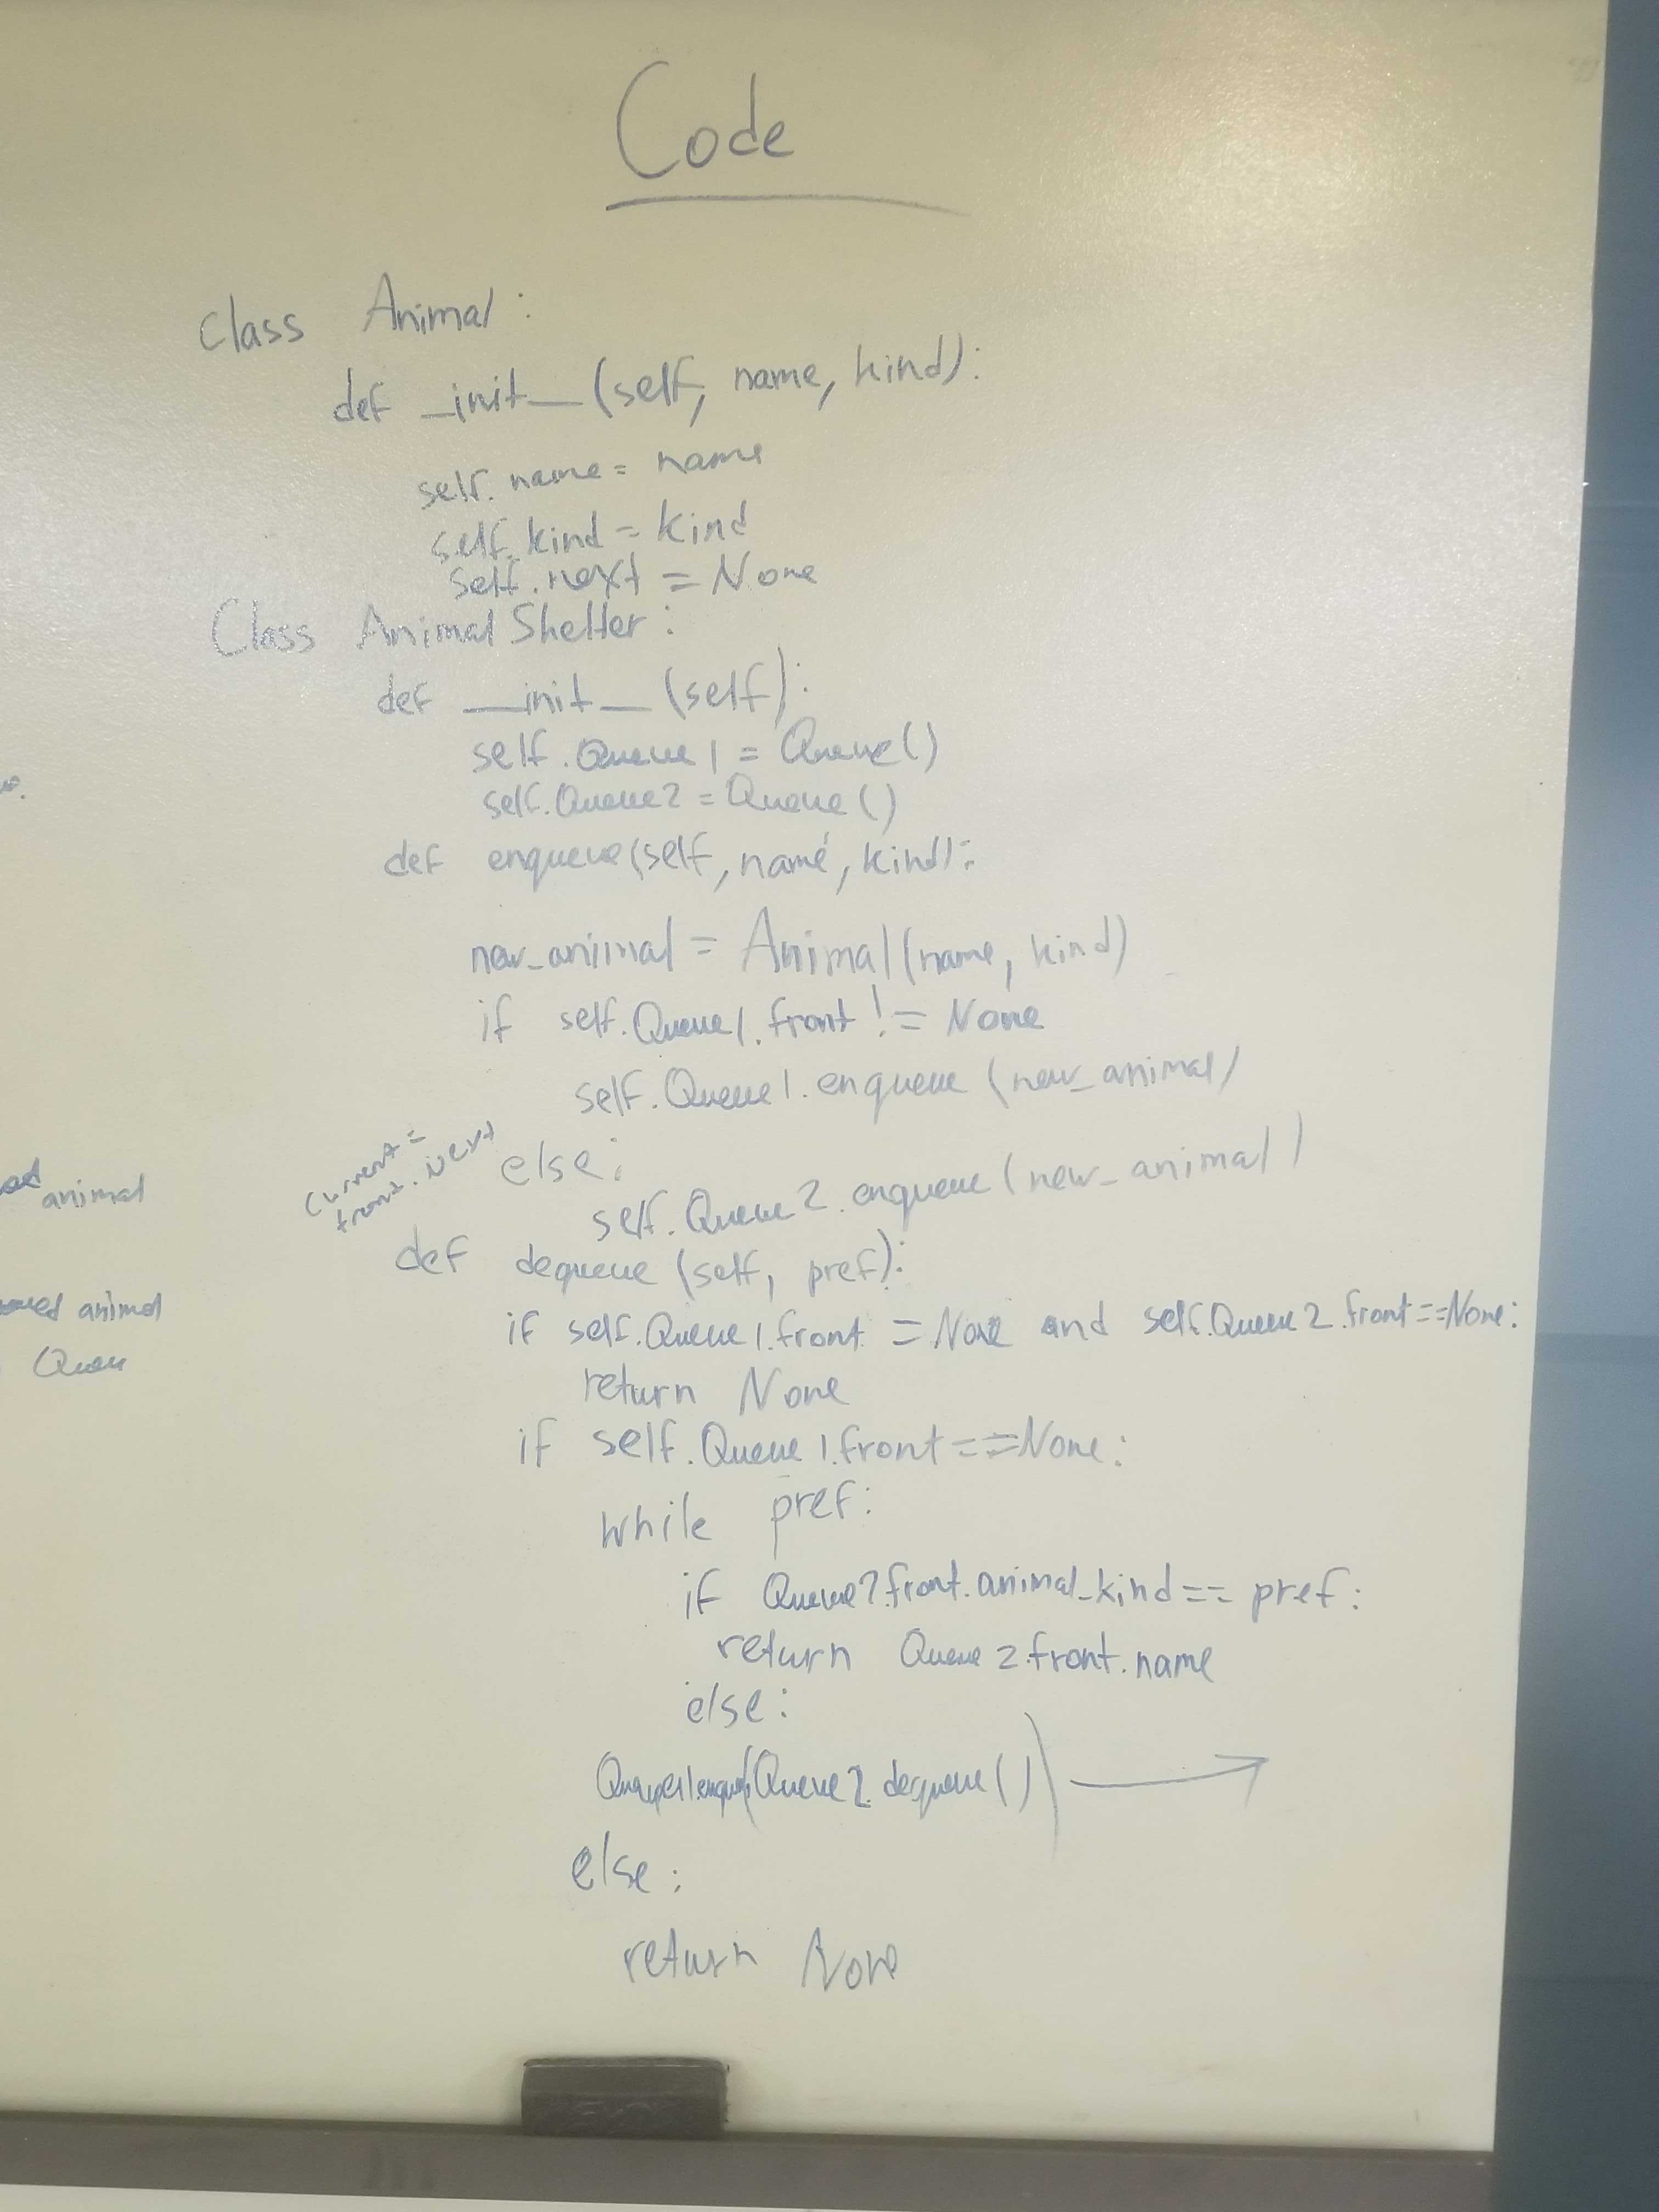 Code
Class Animal:
def _init__(self, name, kind):
self.name = name
self.kind = kind
self.next = None
Class Animal Shelter:
def __init__(self):
self.Queue1 = Queue()
self.Queue2 = Queue()
def enqueue(self, name, kind):
new_animal = Animal(name, kind)
if self.Queue1.front != None
self.Queue1.enqueue(new_animal)
current =
front.next
else:
self.Queue2.enqueue(new_animal)
animal
def dequeue(self, pref):
if self.Queue1.front = None and self.Queue2.front==None:
animal
return None
Queu
if self.Queue1.front==None:
while pref:
if Queue2front.animal_kind== pref:
return Queue2.front.name
else:
Queue2.dequeue()) →
else:
return None